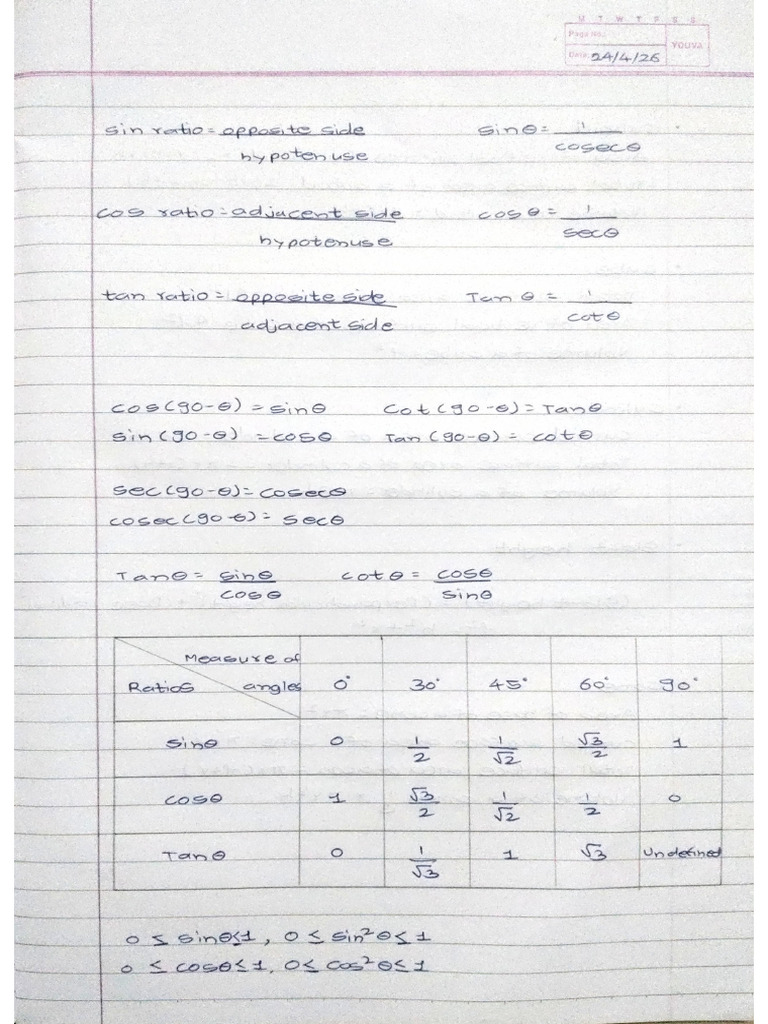 M T W T F S S
Page No.:
YOUVA
Date: 24/4/26
sin ratio = opposite side / hypotenuse    sinθ = 1 / cosecθ
cos ratio = adjacent side / hypotenuse    cosθ = 1 / secθ
tan ratio = opposite side / adjacent side    Tanθ = 1 / cotθ
cos(90-θ) = sinθ    Cot(90-θ) = Tanθ
sin(90-θ) = cosθ    Tan(90-θ) = cotθ
sec(90-θ) = cosecθ
cosec(90-θ) = secθ
Tanθ = sinθ / cosθ    cotθ = cosθ / sinθ
Measure of angles
Ratios    0°    30°    45°    60°    90°
sinθ    0    1/2    1/√2    √3/2    1
cosθ    1    √3/2    1/√2    1/2    0
Tanθ    0    1/√3    1    √3    Undefined
0 ≤ sinθ≤1, 0 ≤ sin²θ ≤ 1
0 ≤ cosθ ≤ 1, 0≤ cos²θ ≤ 1